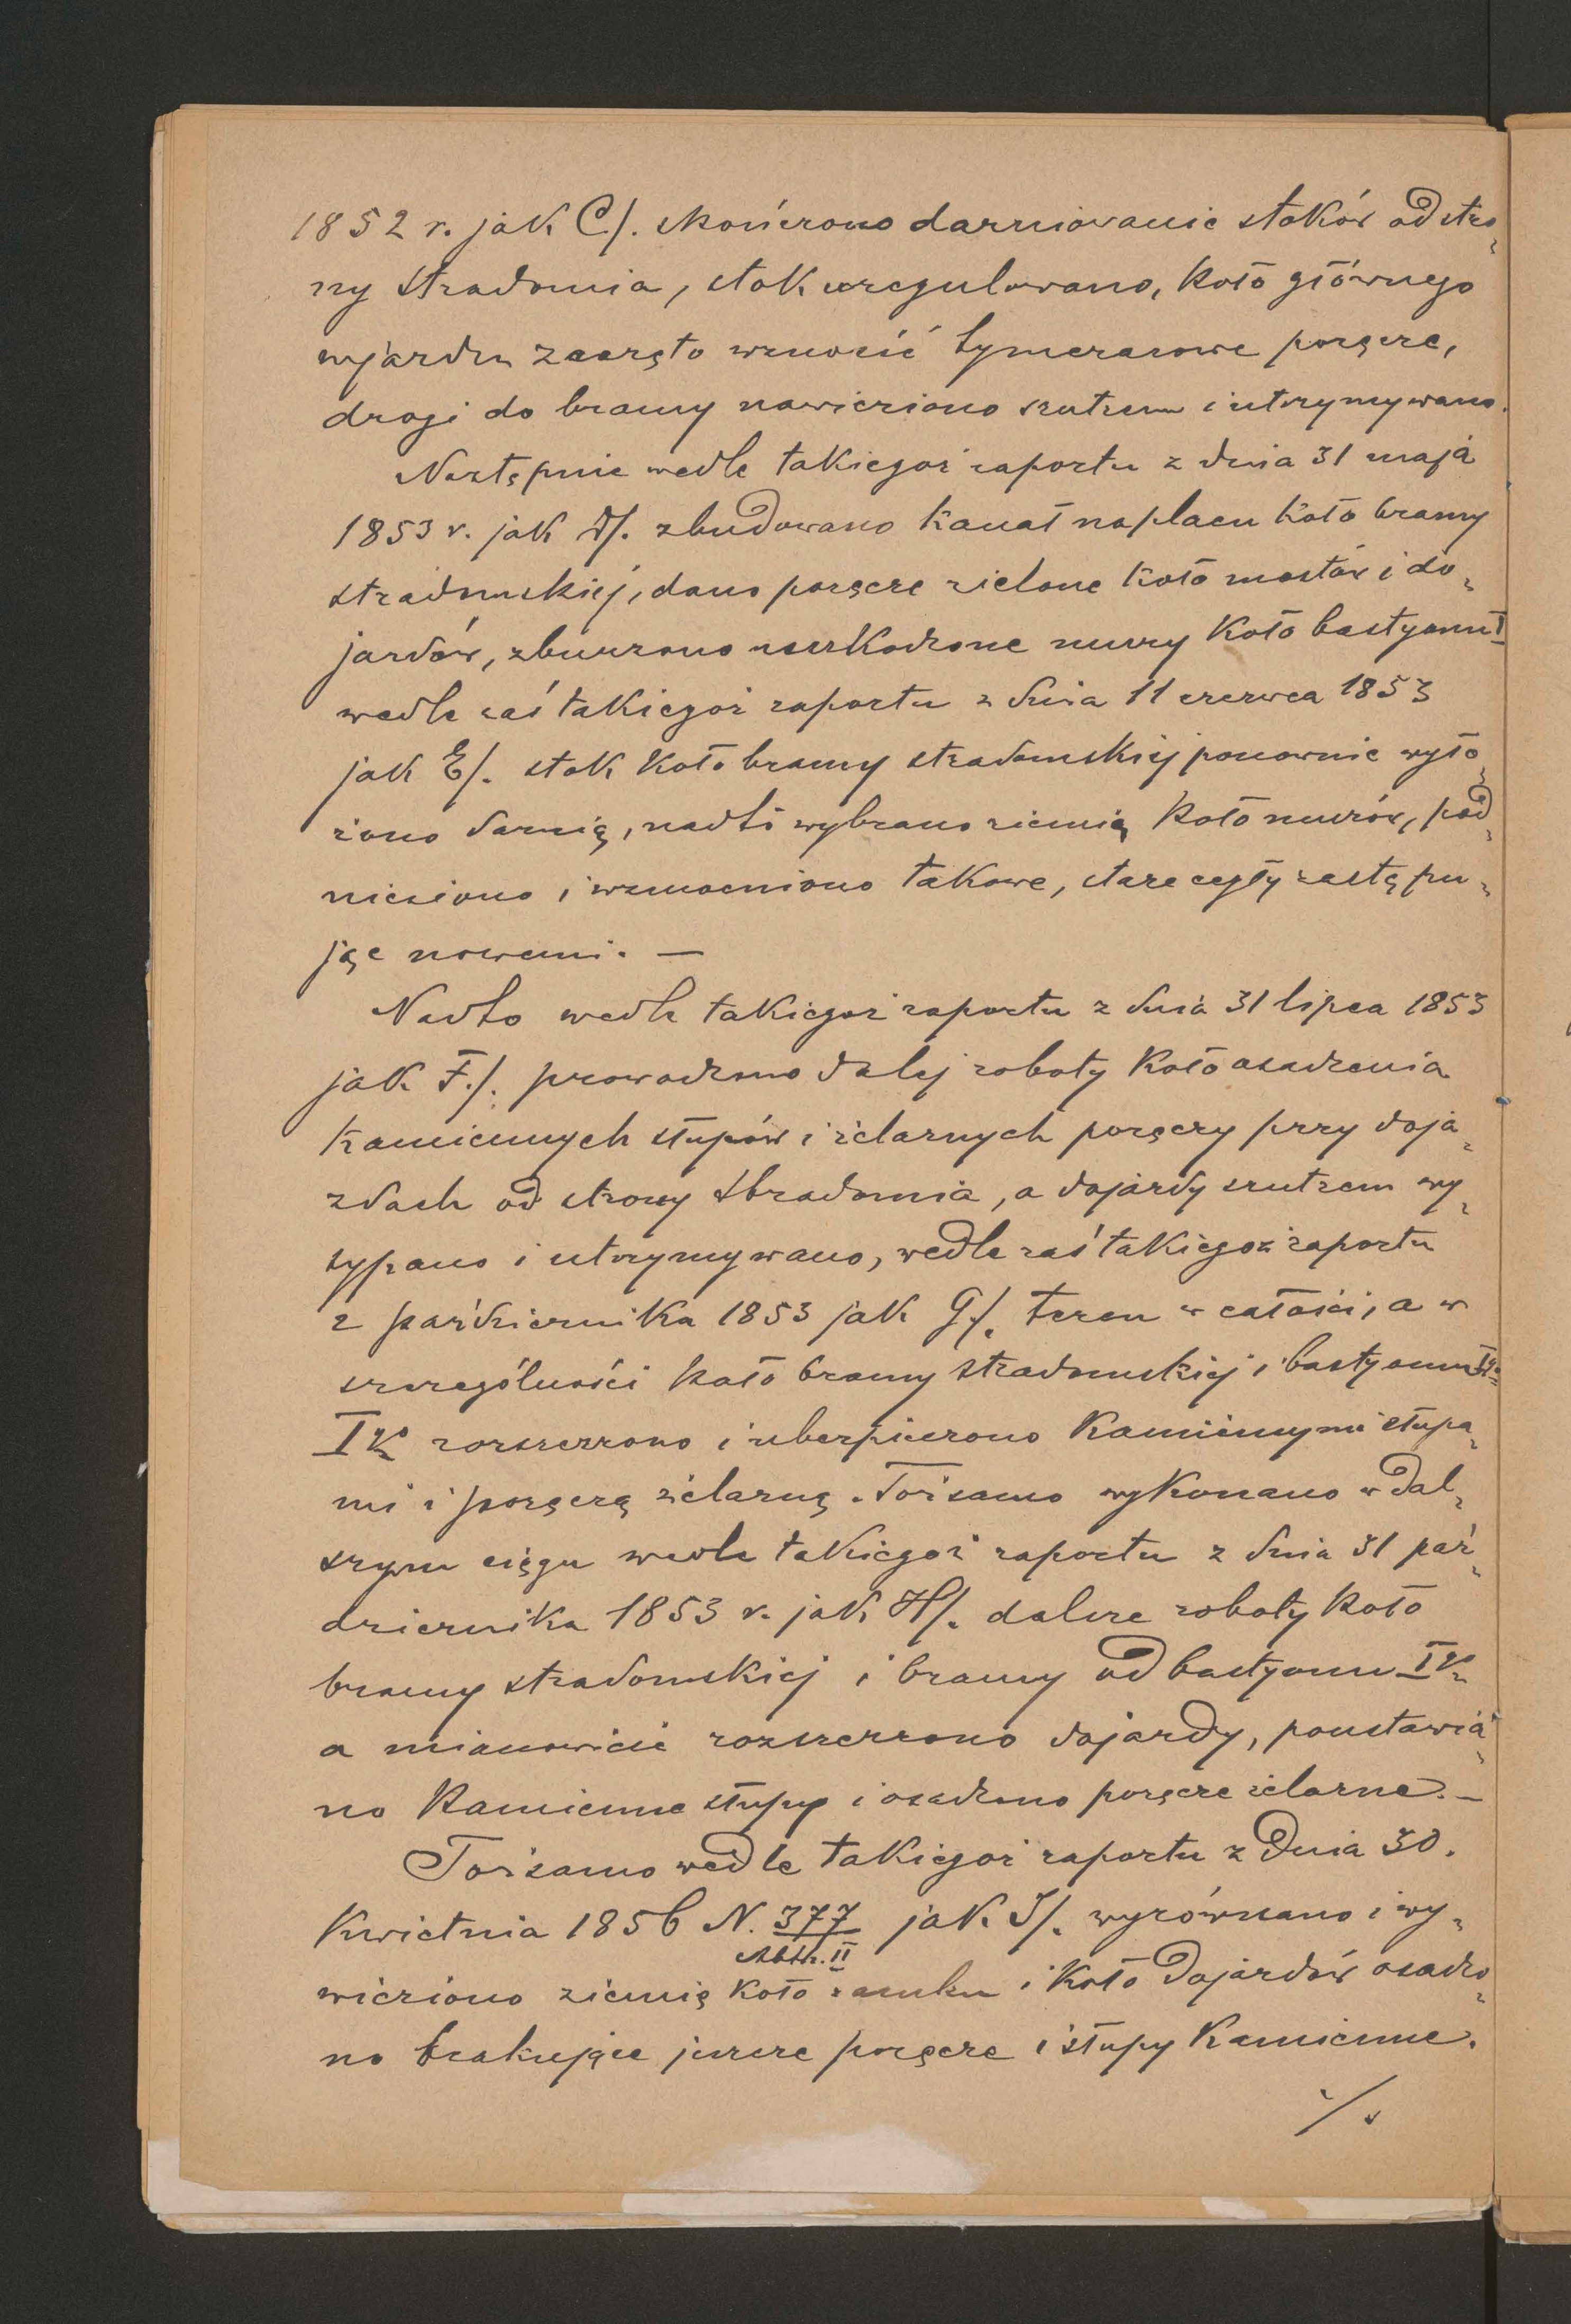 1852 r. jak C/. skończono darniowanie stoków od stro-
ny Stradomia, stok uregulowano, koło głównego
wjazdu zaczęto wznosić tymczasowe poręcze,
drogi do bramy nawieziono szutrem i utrzymywano.
Następnie wedle takiegoż raportu z dnia 31 maja
1853 r. jak D/. zbudowano kanał na placu koło bramy
stradomskiej, dano poręcze zielone koło mostów i do-
jazdów, zburzono uszkodzone mury koło bastyonu I
wedle zaś takiegoż raportu z dnia 11 czerwca 1853
jak E/. stok koło bramy stradomskiej ponownie wyło-
żono darnią, nadto wybrano ziemię koło murów, pod-
niesiono i wzmocniono takowe, stare cegły zastępu-
jąc nowemi. —
Nadto wedle takiegoż raportu z dnia 31 lipca 1853
jak F./. prowadzono dalej roboty koło osadzenia
kamiennych słupów i żelaznych poręczy przy doja-
zdach od strony Stradomia, a dojazdy szutrem wy-
sypano i utrzymywano, wedle zaś takiegoż raportu
z października 1853 jak G/. teren w całości, a w
szczególności koło bramy stradomskiej i bastyonu
IV rozszerzono i ubezpieczono kamiennymi słupa-
mi i poręczą żelazną. Toż samo wykonano w dal-
szym ciągu wedle takiegoż raportu z dnia 31 paź-
dziernika 1853 r. jak H/. dalsze roboty koło
bramy stradomskiej i bramy od bastyonu IV
a mianowicie rozszerzono dojazdy, poustawia-
no kamienne słupy i osadzono poręcze żelazne. —
Toż samo wedle takiegoż raportu z dnia 30.
kwietnia 1856 N. 377 jak J/. wyrównano i wy-
Abth. II
wieziono ziemię koło zamku i koło dojazdów osadzo-
no brakujące jeszcze poręcze i słupy kamienne.
./.